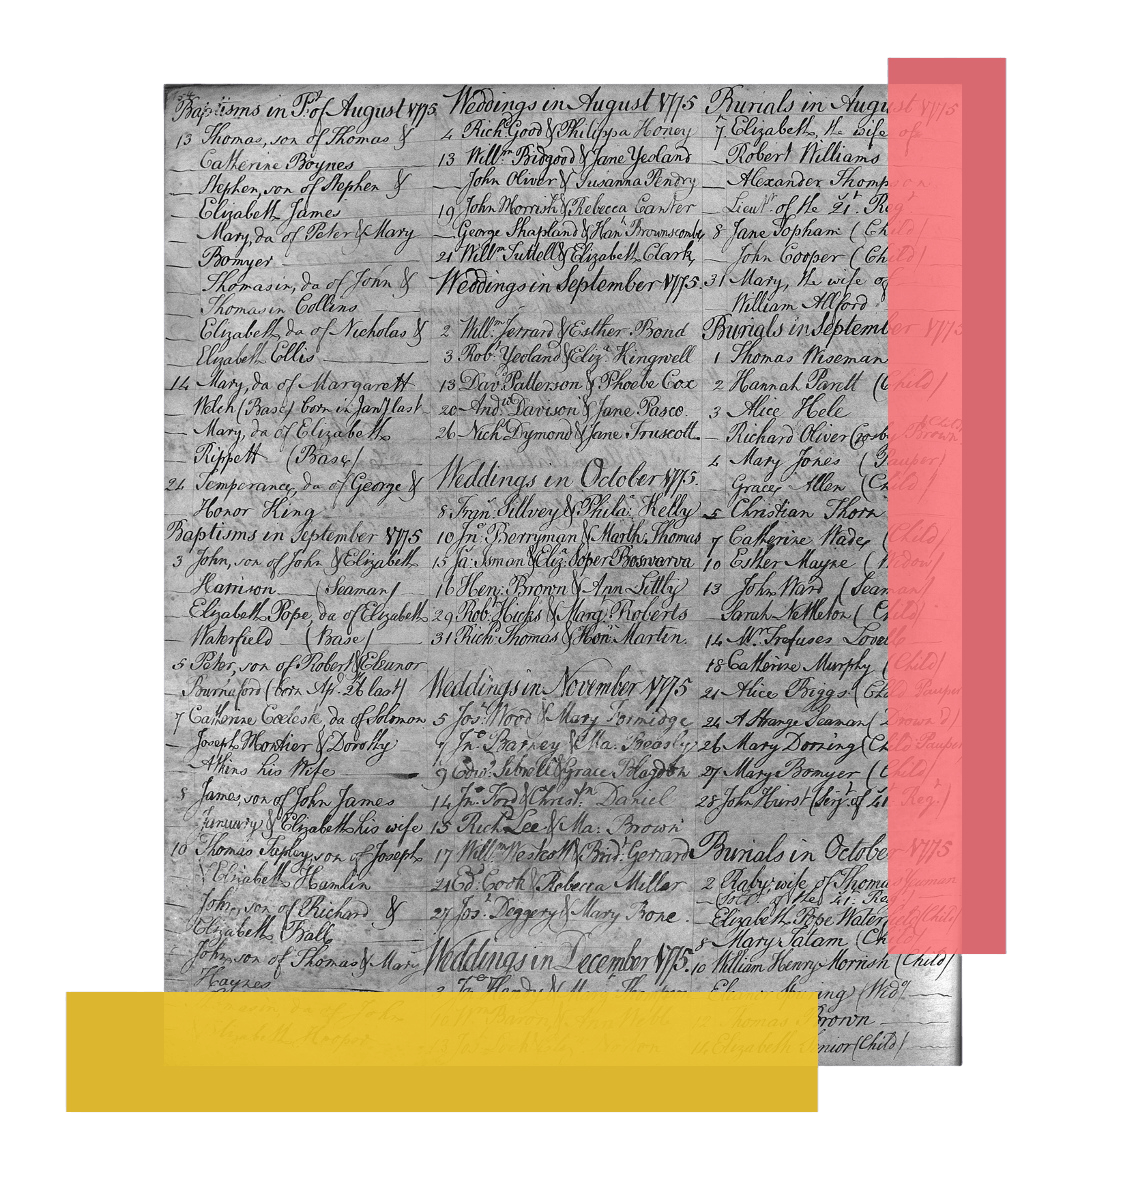 54
Baptisms in Pt of August 1775
13 Thomas, son of Thomas &
Catherine Boynes
Stephen, son of Stephen &
Elizabeth James
Mary, da of Peter & Mary
Bomyer
Thomasin, da of John &
Thomasin Collins
Elizabeth, da of Nicholas &
Elizabeth Ellis
14 Mary, da of Margarett
Welch (Base) born in Jany last
Mary, da of Elizabeth
Rippett (Base)
24 Temperance, da of George &
Honor King
Baptisms in September 1775
3 John, son of John & Elizabeth
Harrison (Seaman)
Elizabeth Pope, da of Elizabeth
Waterfield (Base)
5 Peter, son of Robert & Eleanor
Burnaford (born Apr. 26 last)
7 Catherine Celeste, da of Solomon
Joseph Mortier & Dorothy
Atkins his Wife
8 James, son of John James
January & Elizabeth his wife
10 Thomas Tapley, son of Joseph
& Elizabeth Hamlin
John, son of Richard &
Elizabeth Ball
John, son of Thomas & Mary
Haynes
son of John
Elizabeth Hooper
Weddings in August 1775
4 Rich. Good & Philippa Honey
13 Willm Bidgood & Jane Yeoland
John Oliver & Susanna Pendry
19 John Morrish & Rebecca Canter
George Shapland & Han. Brownscombe
21 Willm Tuttell & Elizabeth Clark
Weddings in September 1775.
2 Will. Jerrard & Esther Bond
3 Robt Yeoland & Eliz. Kingwell
13 Davd Patterson & Phoebe Cox
20 Andw Davison & Jane Pasco.
26 Nich. Dymond & Jane Truscott
Weddings in October 1775.
8 Fran. Sillvey & Phila. Kelly
10 Jno Berryman & Marth. Thomas
15 Ja. Isman & Eliz. Soper Boswarva
16 Hen. Brown & Ann Littly
29 Rob. Hicks & Marg. Roberts
31 Rich. Thomas & Hon. Martin.
Weddings in November 1775
5 Jos. Wood & Mary Formidge
7 Jno Barney & Ma. Beasly
9 Edwd & Grace Blagdon
14 Jno Ford & Christn Daniel
15 Rich. Lee & Ma: Brown
17 Willm Westcott & Brid. Gerrard
21 Ed. Cook & Rebecca Miller
27 Jos. Doggery & Mary Bone.
Weddings in December 1775.
2 Jno & Mary Thompson
10 Wm Baron & Ann Webb
Burials in August 1775
7 Elizabeth, the wife of
Robert Williams
Alexander Thompson
Lieut. of the 21st Regt
8 Jane Topham (Child)
John Cooper (Child)
31 Mary, the wife of
William Allford
Burials in September 1775
1 Thomas Wiseman
2 Hannah Parett (Child)
3 Alice Hele
Richard Oliver Crosby Brown (Child)
4 Mary Jones (Pauper)
Grace Allen (Child)
5 Christian Thorn
7 Catherine Wade (Child)
10 Esther Mayne (Widow)
13 John Ward (Seaman)
Sarah Nettleton (Child)
14 Mr. Trefuses Lovello
18 Catherine Murphy (Child)
21 Alice Biggs (Child Pauper
24 A Strange Seaman (Drown'd)
26 Mary Dorning (Child Pauper
27 Mary Bomyer (Child)
28 John Hurst (Serjt of 21 Regt)
Burials in October 1775
2 Raby, wife of Thomas
(Soldr of the 21. Regt)
Elizabeth Pope Waterfield (Child)
8 Mary Tatam (Child)
10 William Henry Morrish (Child)
Eleanor (Wid).
12 Thomas Brown
14 Elizabeth Senior (Child)